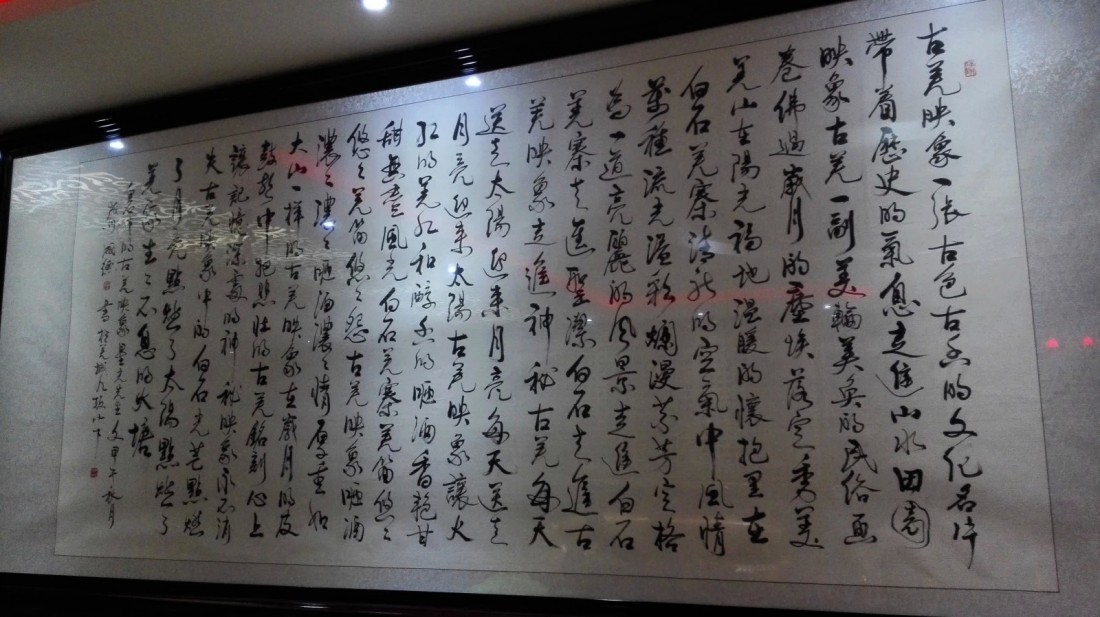 古羌映象一張古色古香的文化名片
帶着歷史的氣息走進山水田園
映象古羌一副美輪美奂的民俗画
卷佛過歲月的塵埃落定秀美
羌山在陽光福地温暖的懷抱里在
白石羌寨清新的空氣中風情
萬種流光溢彩爛漫芬芳定格
为一道亮麗的风景走進白石
羌寨走進聖潔白石走進古
羌映象走進神秘古羌每天
送走太陽迎来月亮每天送走
月亮迎来太陽古羌映象讓火
红的羌红和醇香的咂酒香艳甘
甜無意風光白石羌寨羌笛悠々
悠々羌笛悠々怨古羌映象咂酒
濃々濃々咂酒濃々情厚重如
大山一样的古羌映象在歲月的鼓
鼓聲中把悲壮的古羌銘刻心上
讓記憶深處的神秘映象永不消
失古羌映象中的白石光芒點燃
了月亮點燃了太陽點燃了
羌家生生不息的火塘
的古羌映象 先生文甲午秋月
書於羌城